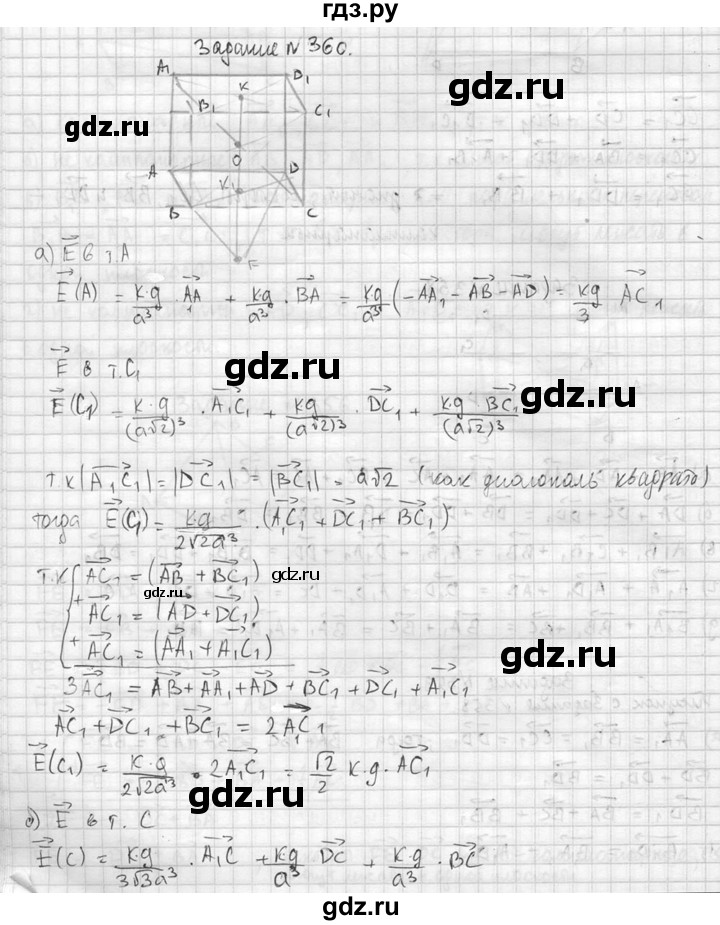 гдз.ру
Задание №360.
A₁ D₁
K
B₁ C₁
gdz.ru
gdz.ru
O
A D
K₁
B C
E
а) E⃗ в т.A
E⃗(A) = k·q/a³ · AA₁⃗ + k·q/a³ · BA⃗ = kq/a³ (−AA₁⃗ − AB⃗ − AD⃗) = kq/3 AC₁⃗
gdz.ru
E⃗ в т.C₁
E⃗(C₁) = k·q/(a√2)³ · A₁C₁⃗ + kq/(a√2)³ · DC₁⃗ + kq·BC₁⃗/(a√2)³
gdz.ru
т.к |A₁C₁⃗| = |DC₁⃗| = |BC₁⃗| = a√2 (как диагональ квадрата)
тогда E⃗(C₁) = kq/2√2a³ · (A₁C₁⃗ + DC₁⃗ + BC₁⃗)
т.к AC₁⃗ = (AB⃗ + BC₁⃗) gdz.ru
gdz.ru
+ AC₁⃗ = (AD⃗ + DC₁⃗)
+ AC₁⃗ = (AA₁⃗ + A₁C₁⃗)
gdz.ru
3AC₁⃗ = AB⃗ + AA₁⃗ + AD⃗ + BC₁⃗ + DC₁⃗ + A₁C₁⃗
AC₁⃗ + DC₁⃗ + BC₁⃗ = 2AC₁⃗
E⃗(C₁) = k·q/2√2a³ · 2A₁C₁⃗ = √2/2 k·q·AC₁⃗
gdz.ru
E⃗ в т. C
E⃗(C) = k·q/3√3a³ · A₁C⃗ + k·q/a³ DC⃗ + k·q/a³ · BC⃗
gdz.ru